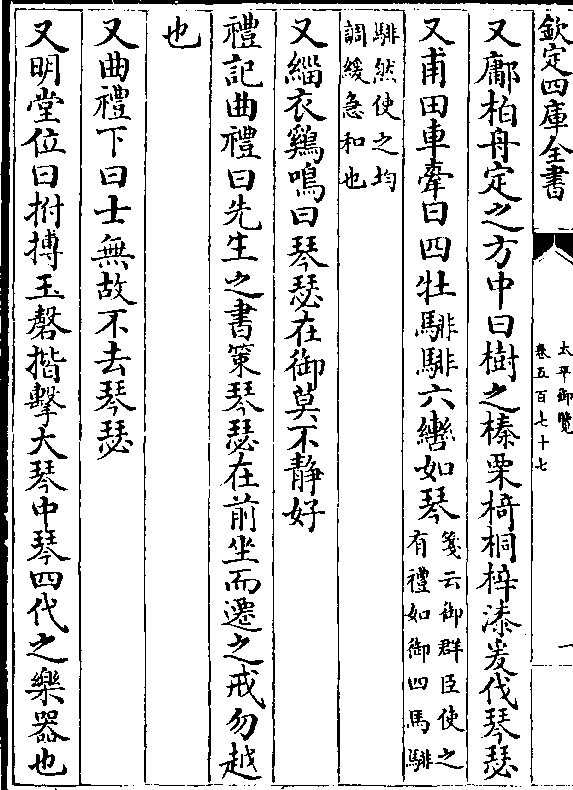 欽定四庫全書
太平御覽
卷五百七十七
一
又鄘柏舟定之方中曰樹之榛栗椅桐梓漆爰伐琴瑟
又甫田車舝曰四牡騑騑六轡如琴
箋云御群臣使之
有禮如御四馬騑
騑然使之均
調緩急和也
又緇衣鷄鳴曰琴瑟在御莫不靜好
禮記曲禮曰先生之書策琴瑟在前坐而遷之戒勿越
也
又曲禮下曰士無故不去琴瑟
又明堂位曰拊搏玉磬揩擊大琴中琴四代之樂器也